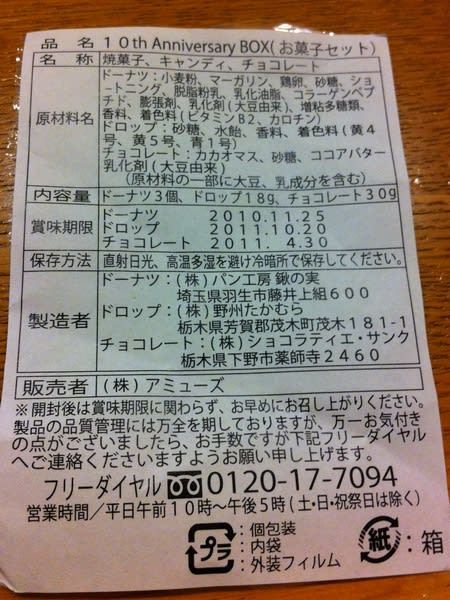 品 名 10th Anniversary BOX(お菓子セット)
名 称 焼菓子、キャンディ、チョコレート
原材料名 ドーナツ：小麦粉、マーガリン、鶏卵、砂糖、ショ
ートニング、脱脂粉乳、乳化油脂、コラーゲンペプ
チド、膨張剤、乳化剤(大豆由来)、増粘多糖類、
香料、着色料(ビタミンB2、カロチン)
ドロップ：砂糖、水飴、香料、着色料(黄4
号、黄5号、青1号)
チョコレート：カカオマス、砂糖、ココアバター
乳化剤(大豆由来)
(原材料の一部に大豆、乳成分を含む)
内容量 ドーナツ3個、ドロップ18g、チョコレート30g
賞味期限 ドーナツ 2010.11.25
ドロップ 2011.10.20
チョコレート 2011. 4.30
保存方法 直射日光、高温多湿を避け冷暗所で保存してください。
製造者 ドーナツ：(株)パン工房 鍬の実
埼玉県羽生市藤井上組600
ドロップ：(株)野州たかむら
栃木県芳賀郡茂木町茂木181-1
チョコレート：(株)ショコラティエ・サンク
栃木県下野市薬師寺2460
販売者 (株)アミューズ
※開封後は賞味期限に関わらず、お早めにお召し上がりください。
製品の品質管理には万全を期しておりますが、万一お気付き
の点がございましたら、お手数ですが下記フリーダイヤル
へご連絡くださいますようお願い申し上げます。
フリーダイヤル 0120-17-7094
営業時間／平日午前10時～午後5時(土・日・祝祭日は除く)
プラ ：個包装
：内袋
：外装フィルム
紙 ：箱